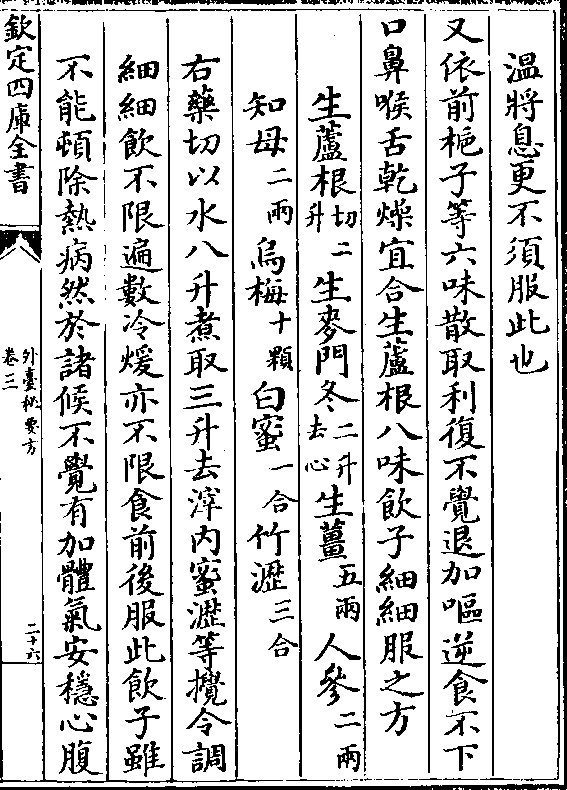 溫將息更不須服此也
又依前梔子等六味散取利復不覺退加嘔逆食不下
口鼻喉舌乾燥宜合生蘆根八味飲子細細服之方
生蘆根切二升 生麥門冬二升去心 生薑五兩 人參二兩
知母二兩 烏梅十顆 白蜜一合 竹瀝三合
右藥切以水八升煮取三升去滓內蜜瀝等攪令調
細細飲不限遍數冷煖亦不限食前後服此飲子雖
不能頓除熱病然於諸候不覺有加體氣安穩心腹
欽定四庫全書
外臺秘要方
卷三
二十六